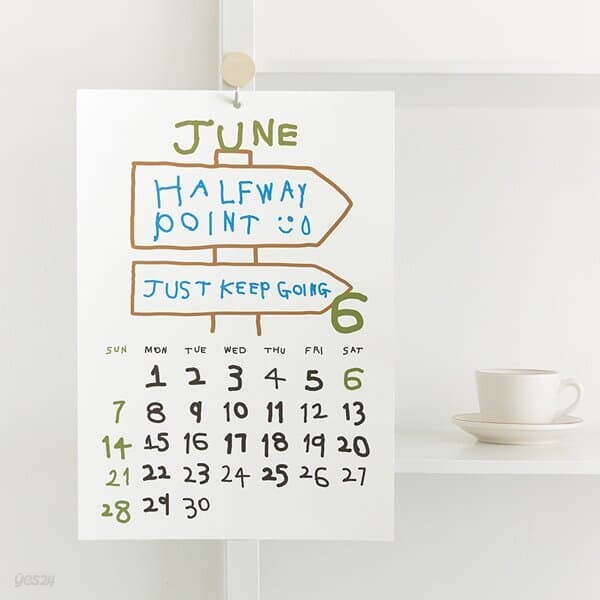 JUNE
HALFWAY
POINT
JUST KEEP GOING
6
SUN MON TUE WED THU FRI SAT
1 2 3 4 5 6
7 8 9 10 11 12 13
14 15 16 17 18 19 20
21 22 23 24 25 26 27
28 29 30
yes24